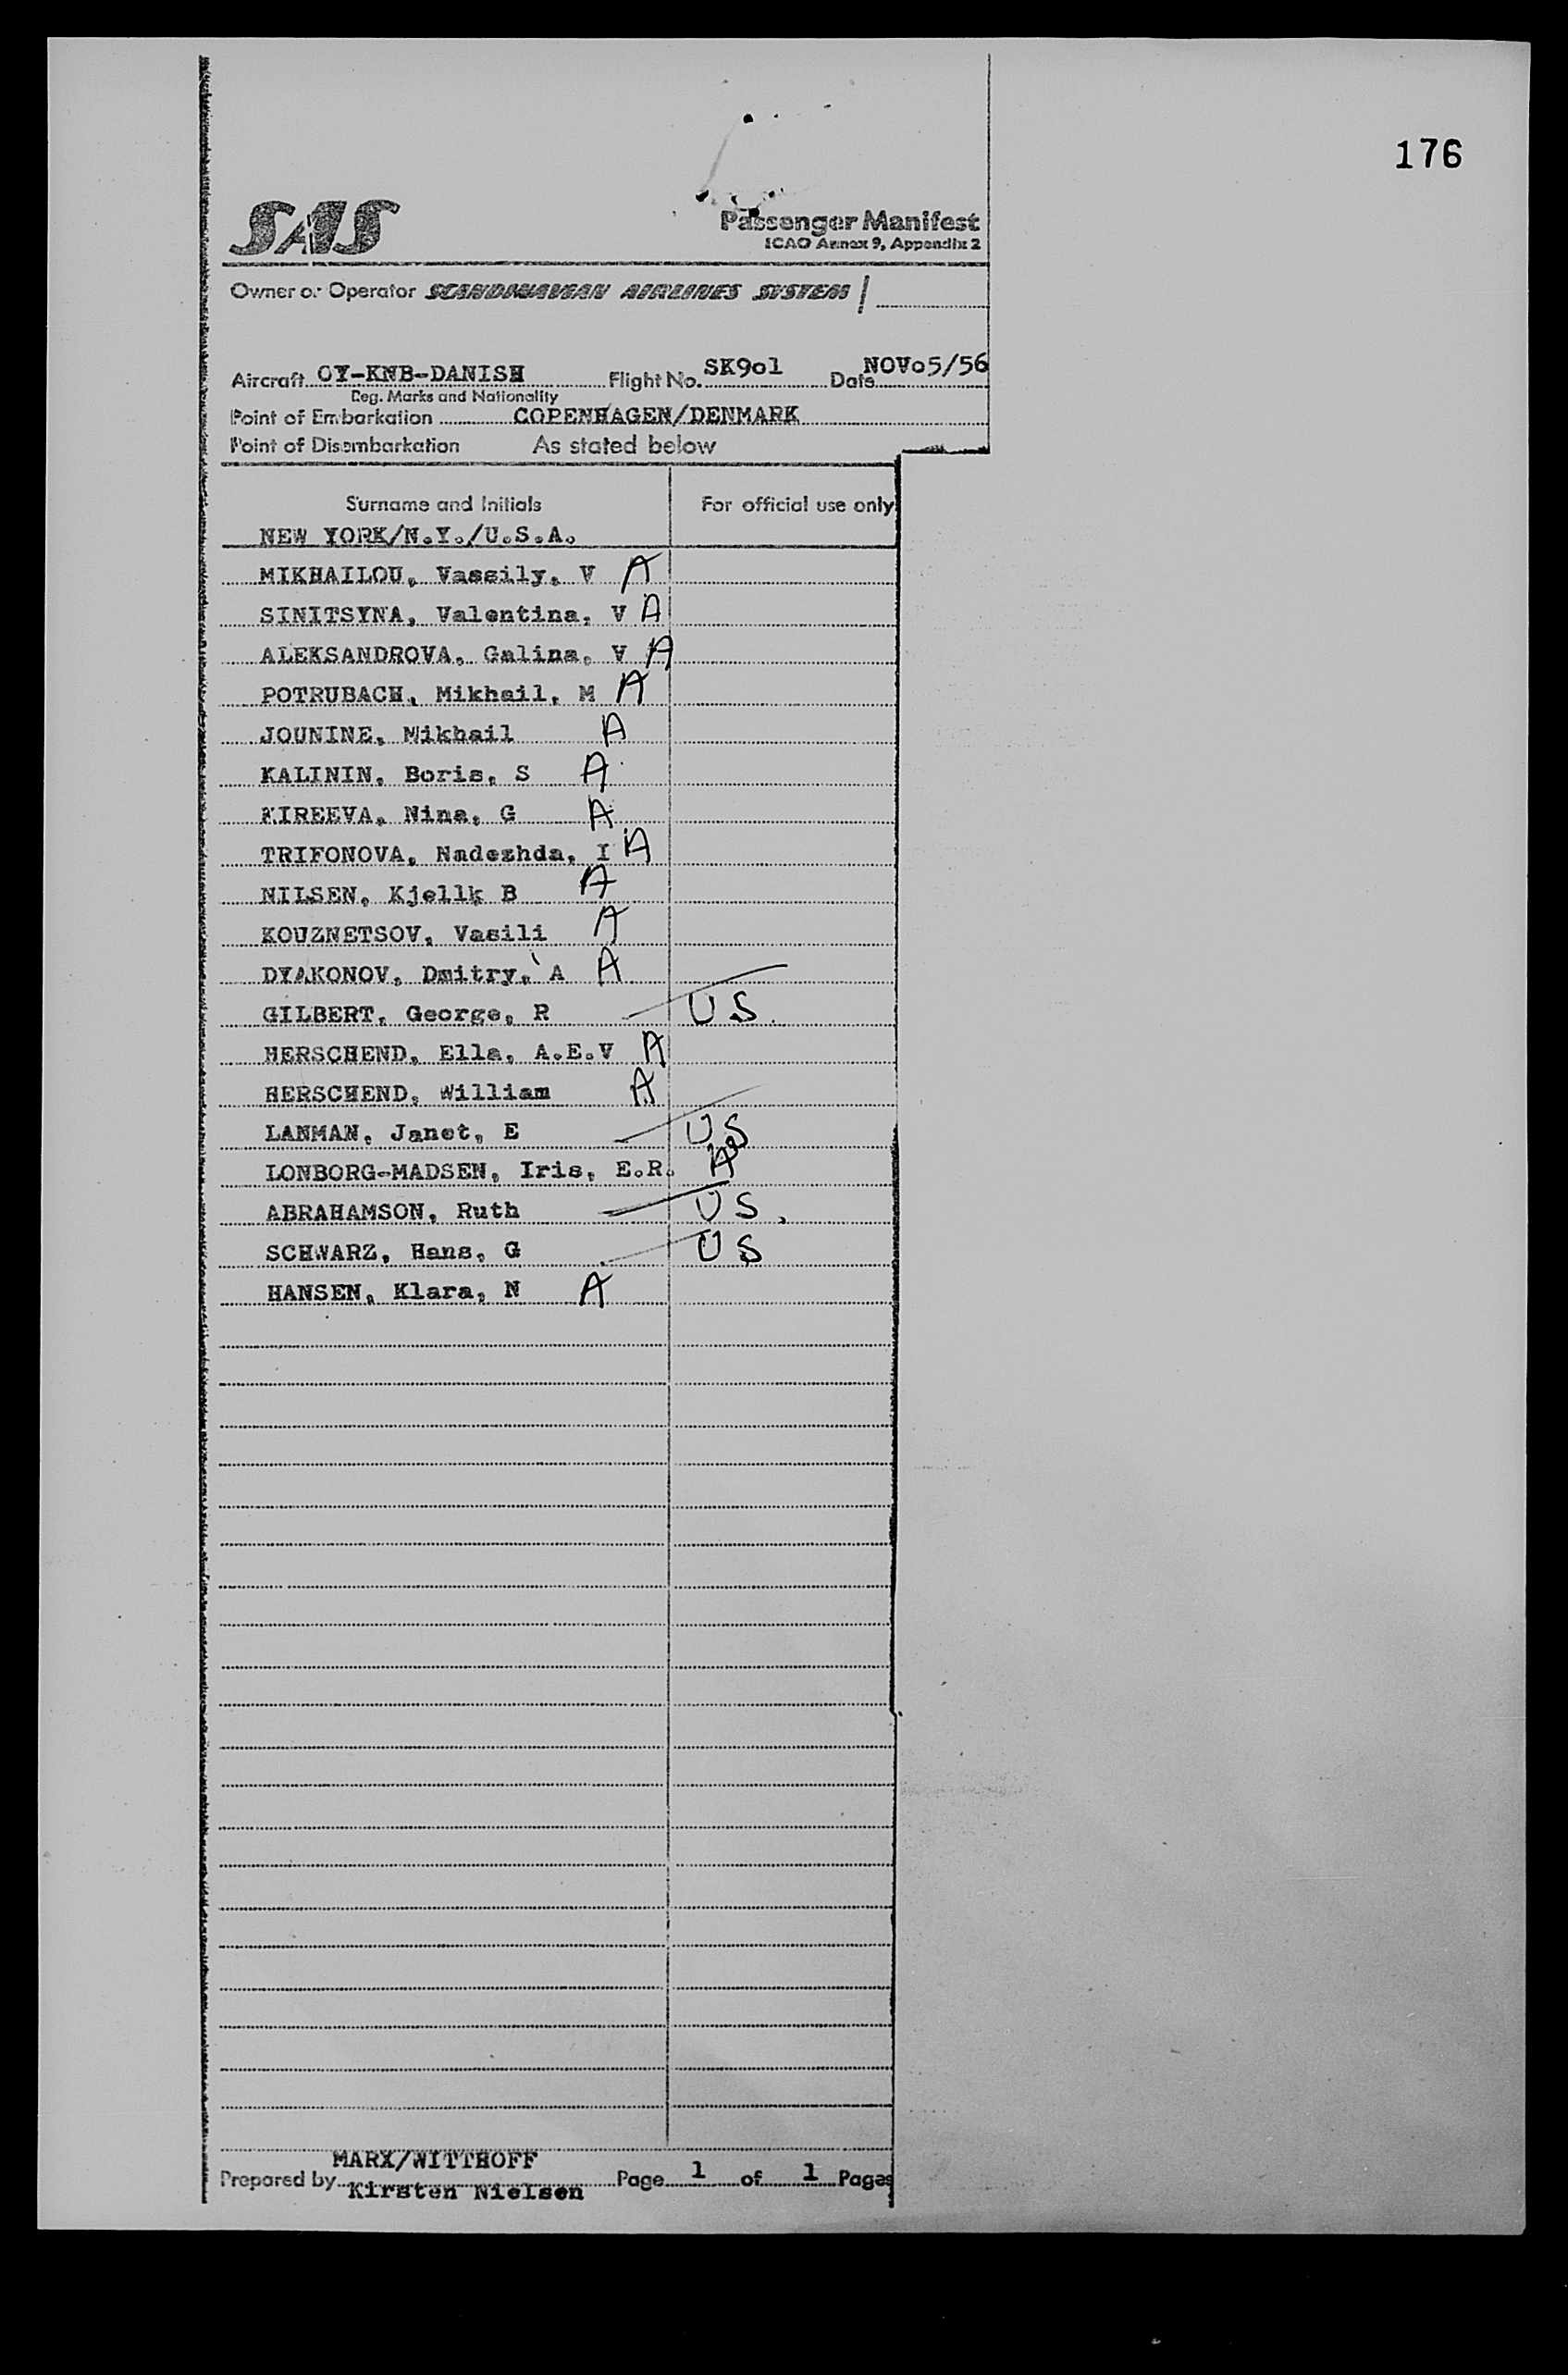 176
SAS
Passenger Manifest
ICAO Annex 9, Appendix 2
Owner or Operator SCANDINAVIAN AIRLINES SYSTEM
Aircraft OY-KNB-DANISH Flight No. SK9o1 Date NOVo5/56
Reg. Marks and Nationality
Point of Embarkation COPENHAGEN/DENMARK
Point of Disembarkation As stated below
Surname and Initials For official use only
NEW YORK/N.Y./U.S.A.
MIKHAILOU, Vassily, V A
SINITSYNA, Valentina, V A
ALEKSANDROVA, Galina, V A
POTRUBACH, Mikhail, M A
JOUNINE, Mikhail A
KALININ, Boris, S A
KIREEVA, Nina, G A
TRIFONOVA, Nadezhda, I A
NILSEN, Kjellk B A
KOUZNETSOV, Vasili A
DYAKONOV, Dmitry, A A
GILBERT, George, R US
HERSCHEND, Ella, A.E.V A
HERSCHEND, William A
LANMAN, Janet, E US
LONBORG-MADSEN, Iris, E.R. A
ABRAHAMSON, Ruth US
SCHWARZ, Hans, G US
HANSEN, Klara, N A
MARX/WITTHOFF
Prepared by Kirsten Nielsen Page 1 of 1 Pages